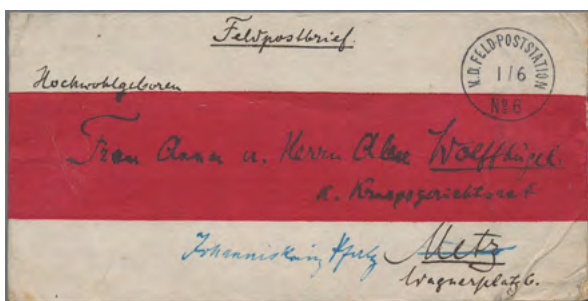 Feldpostbrief.
K.D. FELD-POSTSTATION
1/6
No 6
Hochwohlgeboren
Frau Anna u. Herrn Alex Wolffhügel
K. Kriegsgerichtsrat
Johanniskreuz Pfalz Metz
Wagnerplatz 6.